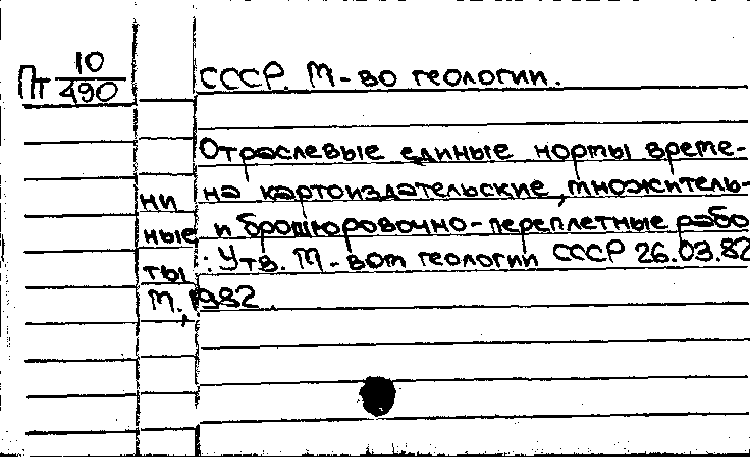 Пт 10/490 СССР. М-во геологии.
Отраслевые единые нормы време-
ни на картоиздательские, множитель-
ные и брошюровочно-переплетные рабо
ты : Утв. М-вом геологии СССР 26.03.82
М., 1982.